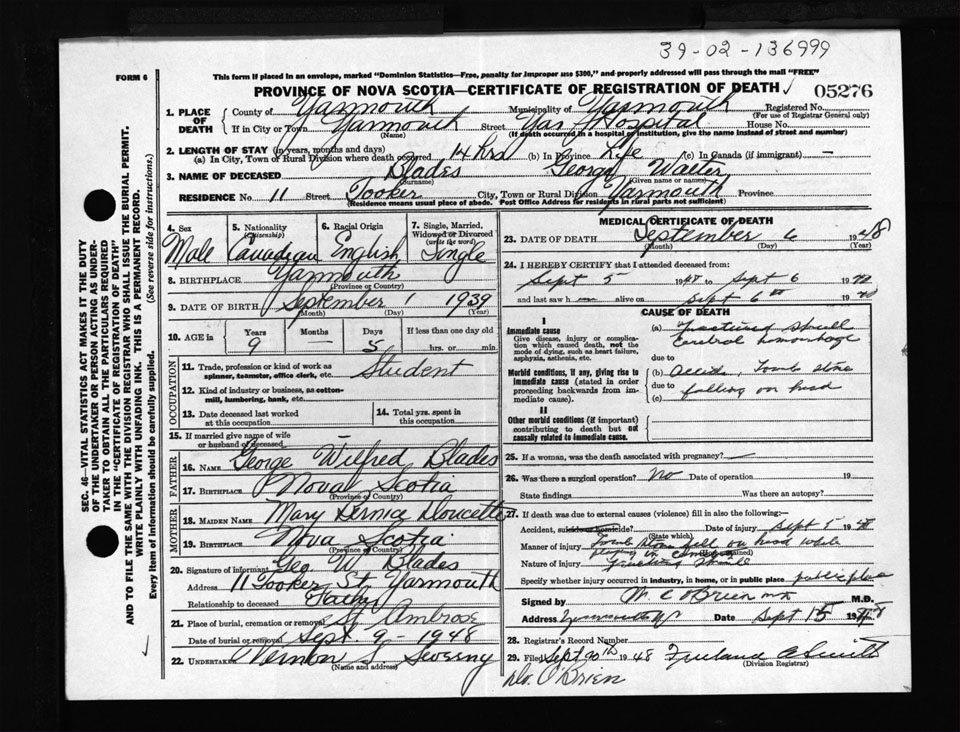 39-02-136999
FORM 6
This form if placed in an envelope, marked "Dominion Statistics—Free, penalty for improper use $300," and properly addressed will pass through the mail "FREE"
PROVINCE OF NOVA SCOTIA—CERTIFICATE OF REGISTRATION OF DEATH
05276
1. PLACE OF DEATH
County of Yarmouth Municipality of Yarmouth Registered No.
(For use of Registrar General only)
If in City or Town Yarmouth Street Yar. Hospital House No.
(Name) (If death occurred in a hospital or institution, give the name instead of street and number)
2. LENGTH OF STAY (in years, months and days)
(a) In City, Town or Rural Division where death occurred 14 hrs (b) In Province Life (c) In Canada (if immigrant) —
3. NAME OF DECEASED Blades George Walter
(Surname) (Given name or names)
RESIDENCE No 11 Street Tooker City, Town or Rural Division Yarmouth Province
(Residence means usual place of abode. Post Office Address for residents in rural parts not sufficient)
4. Sex
Male
5. Nationality
(Citizenship)
Canadian
6. Racial Origin
English
7. Single, Married, Widowed or Divorced
(write the word)
Single
8. BIRTHPLACE Yarmouth
(Province or Country)
9. DATE OF BIRTH September 1 1939
(Month) (Day) (Year)
10. AGE in
Years 9
Months —
Days 5
If less than one day old
hrs. or min.
OCCUPATION
11. Trade, profession or kind of work as spinner, teamster, office clerk, etc. Student
12. Kind of industry or business, as cotton-mill, lumbering, bank, etc.
13. Date deceased last worked at this occupation
14. Total yrs. spent in this occupation
15. If married give name of wife or husband of deceased —
FATHER
16. NAME George Wilfred Blades
17. BIRTHPLACE Nova Scotia
(Province or Country)
MOTHER
18. MAIDEN NAME Mary Bernice Doucette
19. BIRTHPLACE Nova Scotia
(Province or Country)
20. Signature of informant Geo. W Blades
Address 11 Tooker St. Yarmouth
Relationship to deceased Father
21. Place of burial, cremation or removal St Ambrose
Date of burial or removal Sept. 9 - 1948
22. UNDERTAKER Vernon S. Sweeny
(Name and address)
MEDICAL CERTIFICATE OF DEATH
23. DATE OF DEATH September 6 1948
(Month) (Day) (Year)
24. I HEREBY CERTIFY that I attended deceased from:
Sept 5 1948 to Sept 6 1948
and last saw h alive on Sept 6th 1948
CAUSE OF DEATH
I
Immediate cause
Give disease, injury or complication which caused death, not the mode of dying, such as heart failure, asphyxia, asthenia, etc.
(a) fractured skull
cerebral hemorrhage
due to
Morbid conditions, if any, giving rise to immediate cause (stated in order proceeding backwards from immediate cause).
(b) Tomb stone
due to falling on head
(c)
II
Other morbid conditions (if important) contributing to death but not causally related to immediate cause.
25. If a woman, was the death associated with pregnancy? —
26. Was there a surgical operation? No Date of operation 19
State findings Was there an autopsy?
27. If death was due to external causes (violence) fill in also the following:
Accident, suicide or homicide? Date of injury Sept 5 1948
(State which)
Manner of injury Tomb stone fell on head while
playing in
Nature of injury skull
Specify whether injury occurred in industry, in home, or in public place public place
Signed by M. C O'Brien M.D.
Address Yarmouth Date Sept 15 19
28. Registrar's Record Number
29. Filed Sept 20th 1948 Freeland A Smith
(Division Registrar)
Dr. O'Brien
SEC. 46—VITAL STATISTICS ACT MAKES IT THE DUTY
OF THE UNDERTAKER OR PERSON ACTING AS UNDER-
TAKER TO OBTAIN ALL THE PARTICULARS REQUIRED
IN THE "CERTIFICATE OF REGISTRATION OF DEATH"
AND TO FILE THE SAME WITH THE DIVISION REGISTRAR WHO SHALL ISSUE THE BURIAL PERMIT.
WRITE PLAINLY WITH UNFADING INK. THIS IS A PERMANENT RECORD.
Every item of information should be carefully supplied. (See reverse side for instructions.)